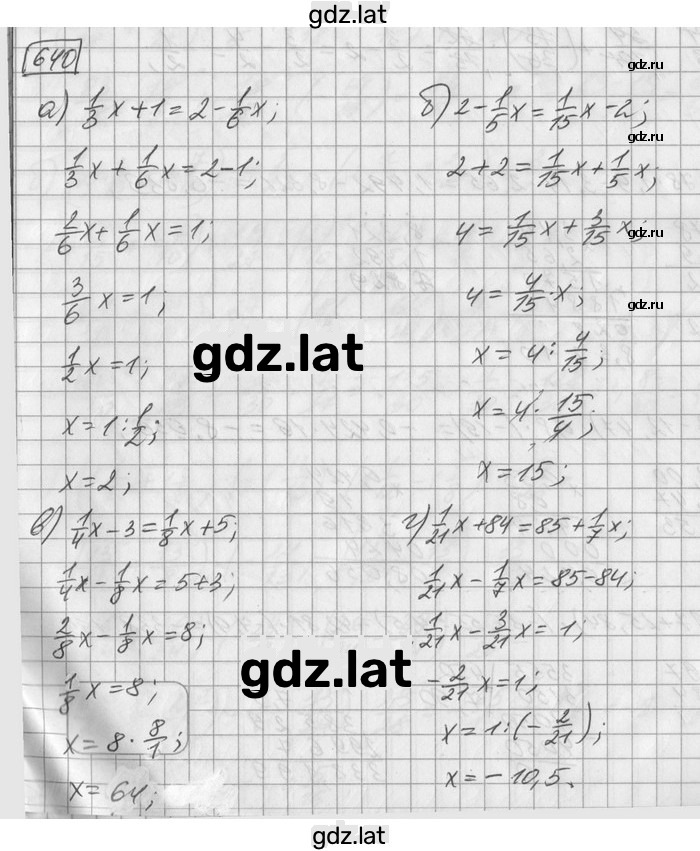 gdz.lat
640
а) 1/3 x + 1 = 2 - 1/6 x;
1/3 x + 1/6 x = 2 - 1;
2/6 x + 1/6 x = 1;
3/6 x = 1;
1/2 x = 1;
x = 1 : 1/2;
x = 2;
б) 2 - 1/5 x = 1/15 x - 2;
2 + 2 = 1/15 x + 1/5 x;
4 = 1/15 x + 3/15 x;
4 = 4/15 · x;
x = 4 : 4/15;
x = 4 · 15/4;
x = 15;
в) 1/4 x - 3 = 1/8 x + 5;
1/4 x - 1/8 x = 5 + 3;
2/8 x - 1/8 x = 8;
1/8 x = 8;
x = 8 · 8/1;
x = 64;
г) 1/21 x + 84 = 85 + 1/7 x;
1/21 x - 1/7 x = 85 - 84;
1/21 x - 3/21 x = 1;
- 2/21 x = 1;
x = 1 : (- 2/21);
x = - 10,5.
gdz.ru
gdz.ru
gdz.ru
gdz.ru
gdz.lat
gdz.lat
gdz.lat